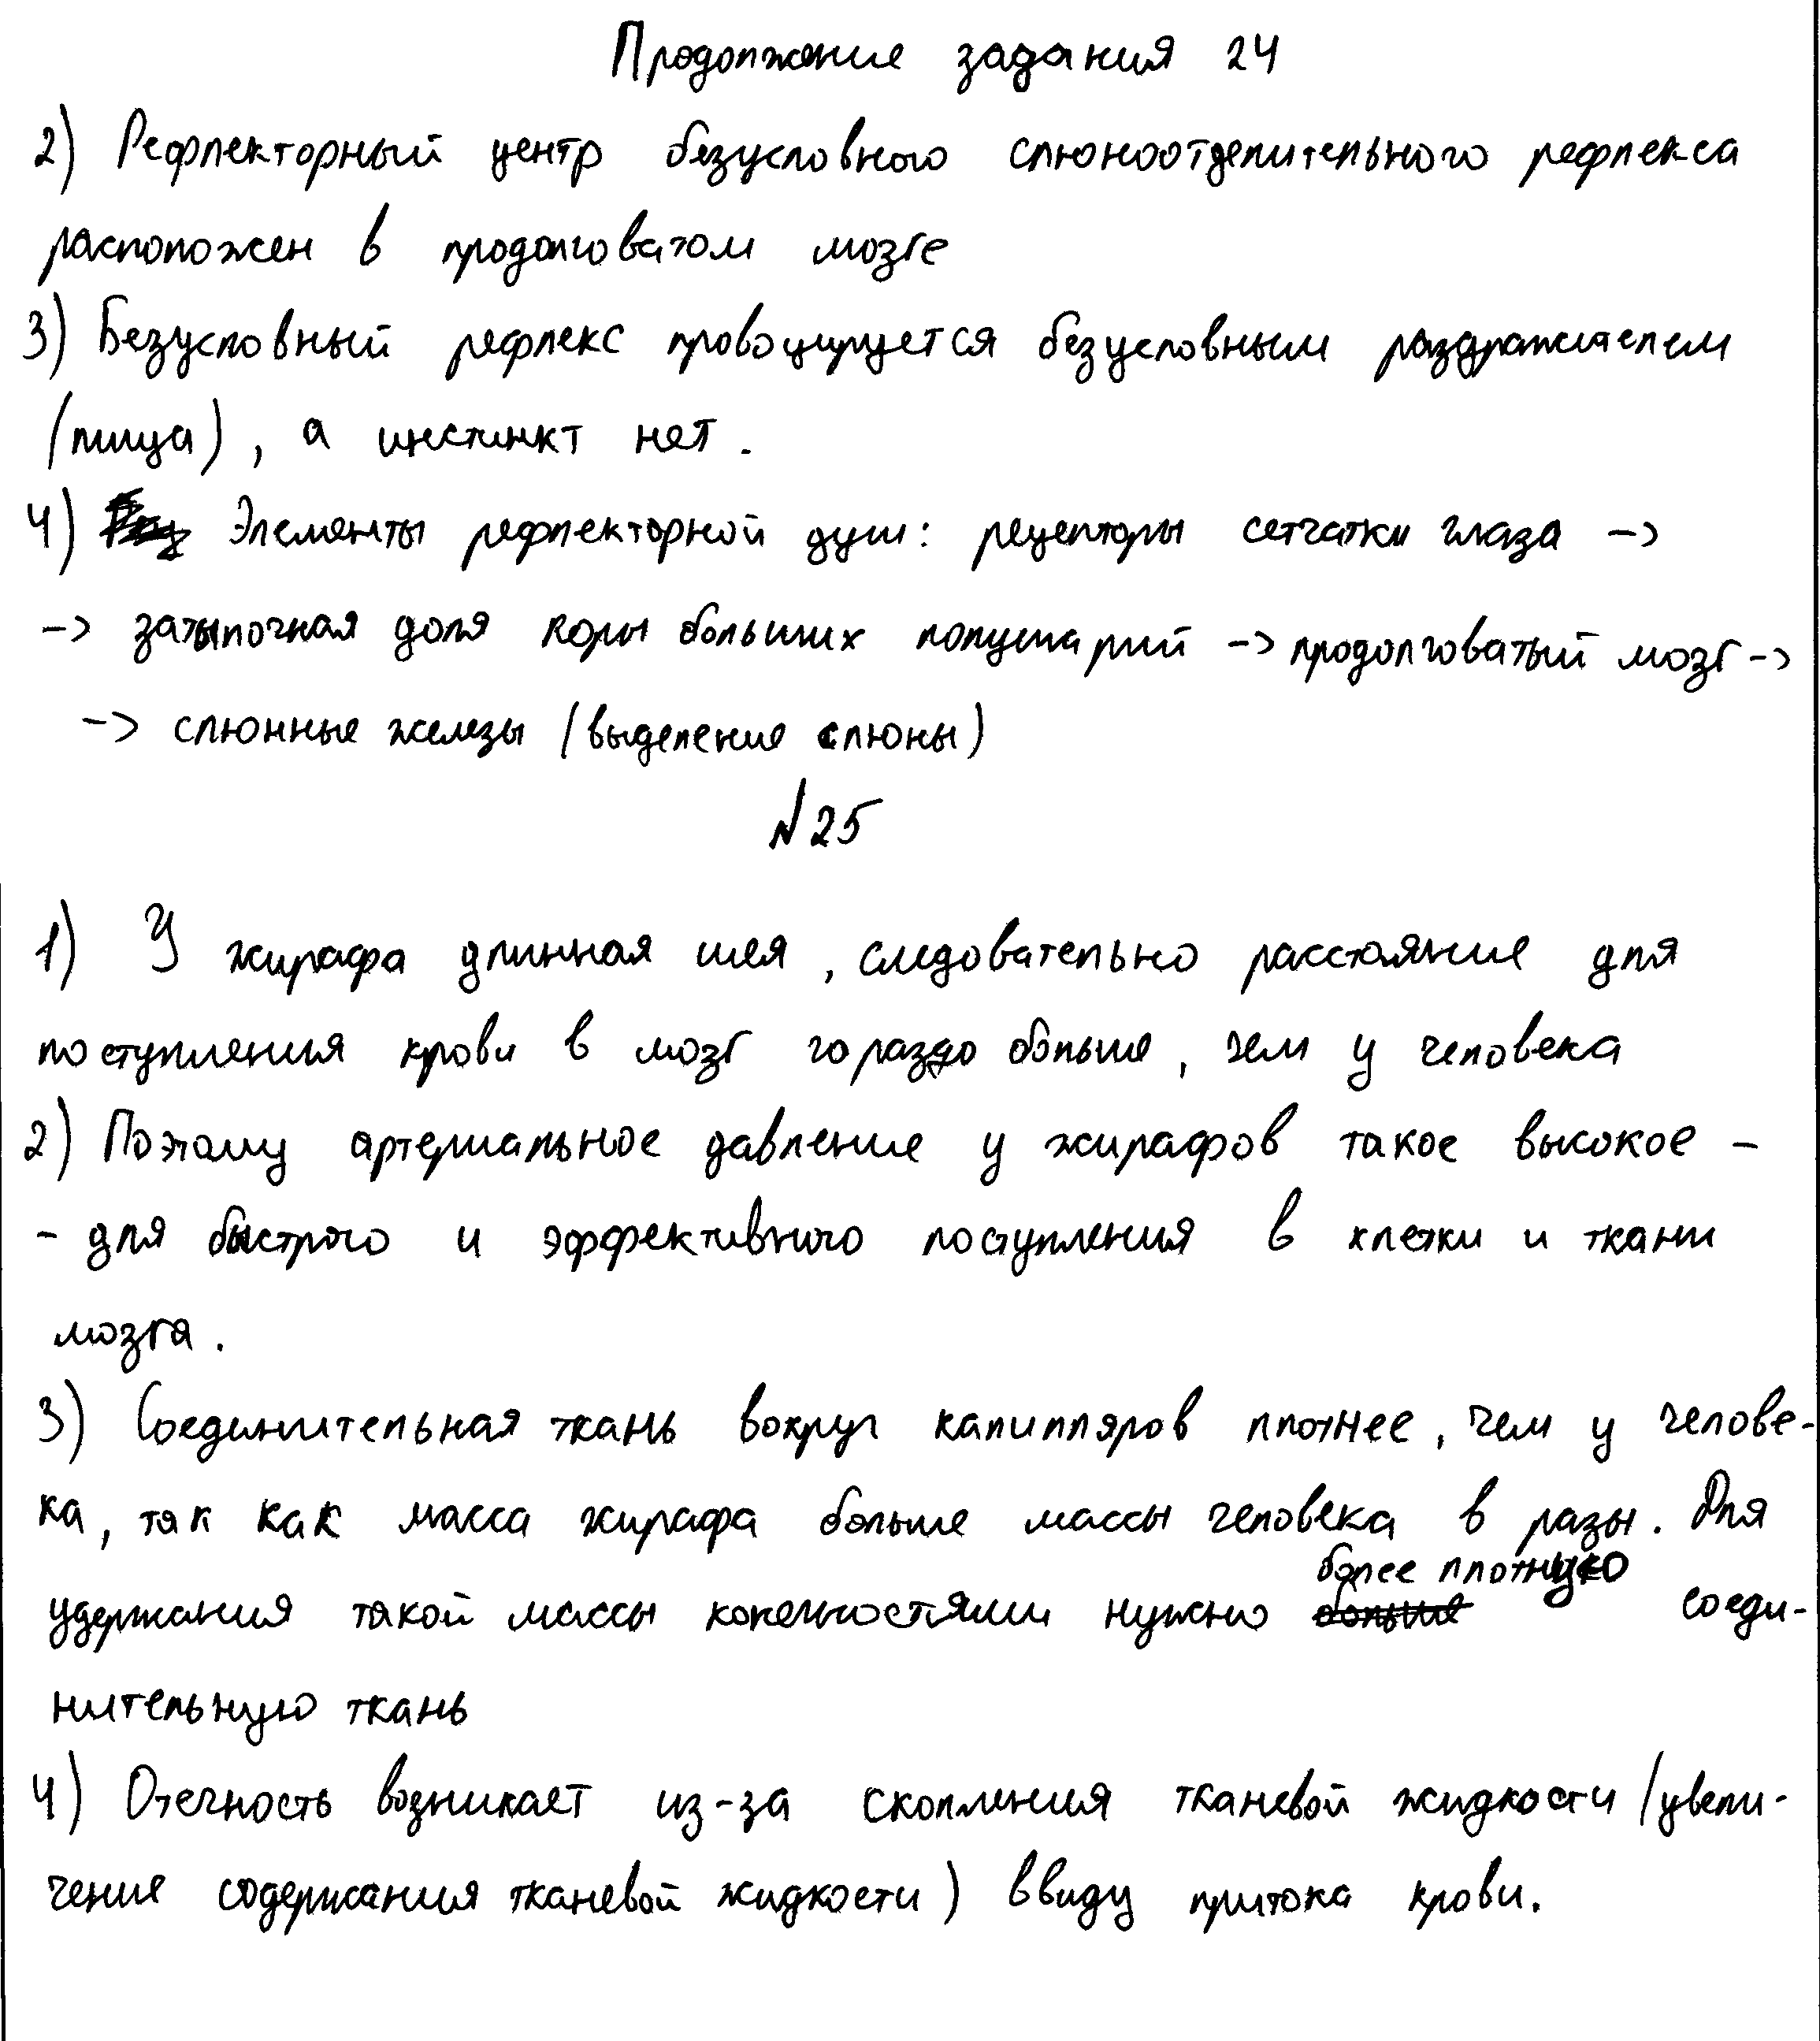 Продолжение задания 24
2) Рефлекторный центр безусловного слюноотделительного рефлекса
расположен в продолговатом мозге
3) Безусловный рефлекс провоцируется безусловным раздражителем
(пища), а инстинкт нет.
4) Элементы рефлекторной дуги: рецепторы сетчатки глаза ->
-> затылочная доля коры больших полушарий -> продолговатый мозг ->
-> слюнные железы (выделение слюны)
№25
1) У жирафа длинная шея, следовательно расстояние для
поступления крови в мозг гораздо больше, чем у человека
2) Поэтому артериальное давление у жирафов такое высокое -
- для быстрого и эффективного поступления в клетки и ткани
мозга.
3) Соединительная ткань вокруг капилляров плотнее, чем у челове-
ка, так как масса жирафа больше массы человека в разы. Для
удержания такой массы конечностями нужно ~~больше~~ более плотную соеди-
нительную ткань
4) Отечность возникает из-за скопления тканевой жидкости (увели-
чение содержания тканевой жидкости) ввиду притока крови.